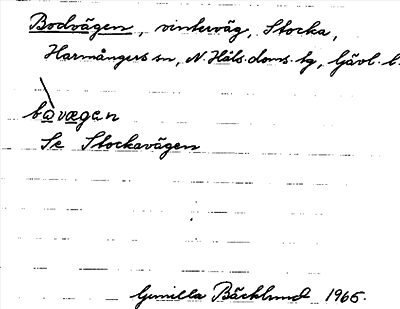 Bodvägen, vinterväg, Stocka,
Harmångers sn, N. Häls. doms. tg, Gävl. l.
bòvægen
Se Stockavägen
Gunilla Bäcklund 1965.